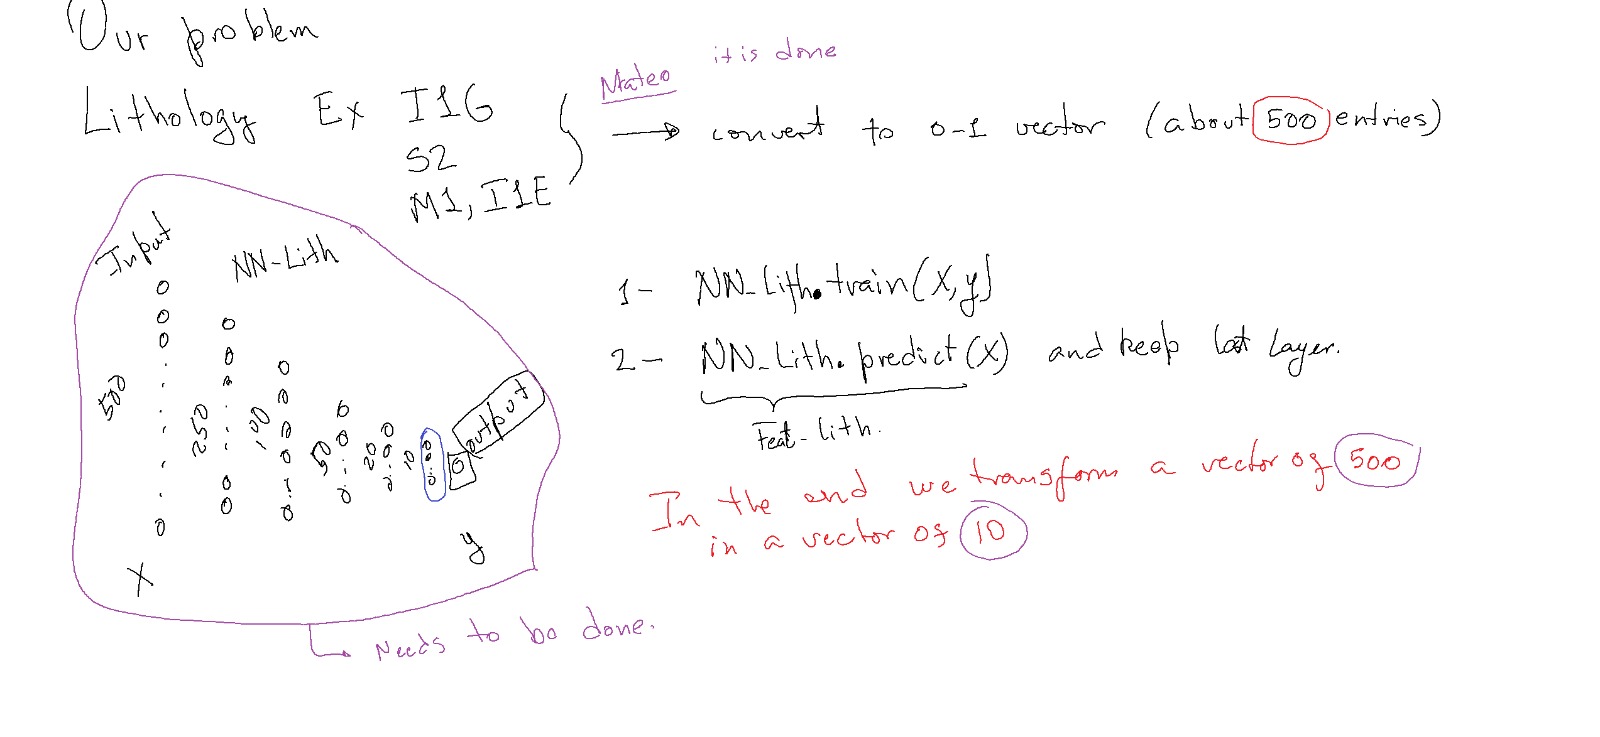 Our problem
it is done
Mateo
Lithology Ex I1G
S2
M1, I1E
→ convert to 0-1 vector (about 500 entries)
Input
NN-Lith
500
250
100
50
20
10
output
X
y
1- NN_Lith.train(X,y)
2- NN_Lith.predict(X) and keep last layer.
Feat-Lith.
In the end we transform a vector of 500
in a vector of 10
Needs to be done.